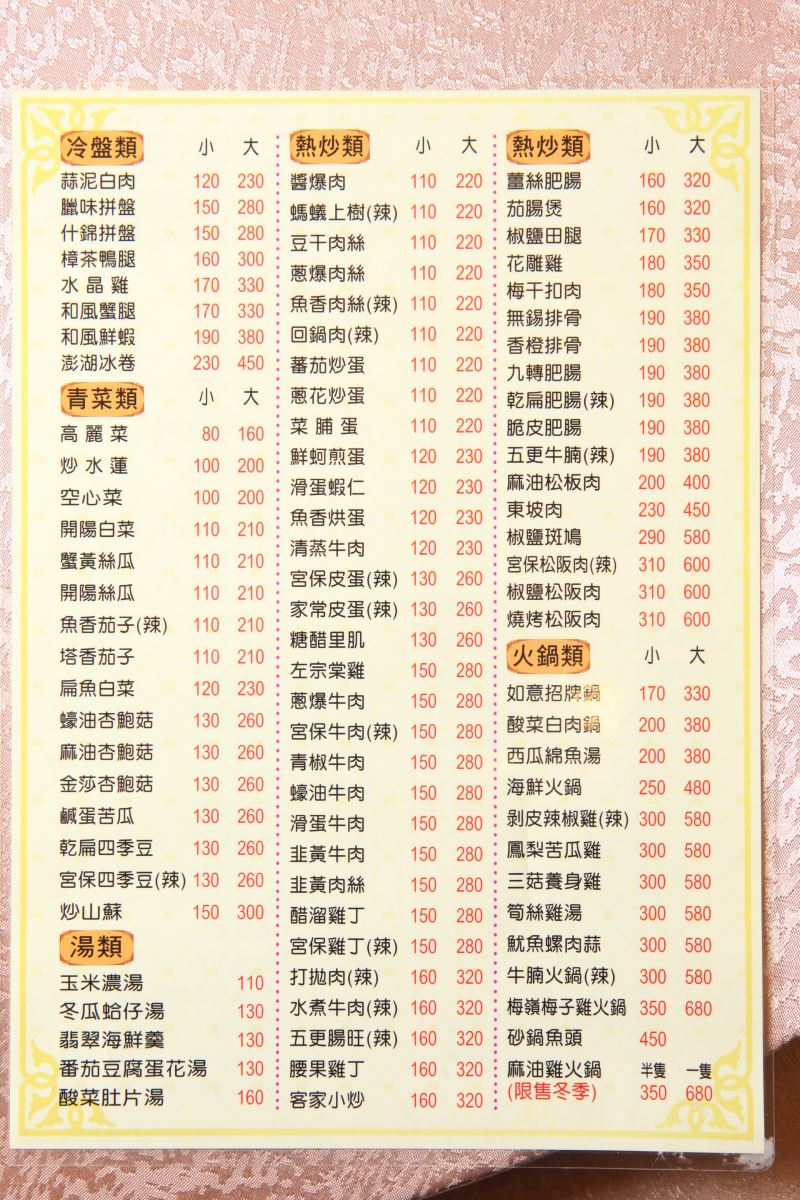 冷盤類 小 大
蒜泥白肉 120 230
臘味拼盤 150 280
什錦拼盤 150 280
樟茶鴨腿 160 300
水晶雞 170 330
和風蟹腿 170 330
和風鮮蝦 190 380
澎湖冰卷 230 450
青菜類 小 大
高麗菜 80 160
炒水蓮 100 200
空心菜 100 200
開陽白菜 110 210
蟹黃絲瓜 110 210
開陽絲瓜 110 210
魚香茄子(辣) 110 210
塔香茄子 110 210
扁魚白菜 120 230
蠔油杏鮑菇 130 260
麻油杏鮑菇 130 260
金莎杏鮑菇 130 260
鹹蛋苦瓜 130 260
乾扁四季豆 130 260
宮保四季豆(辣) 130 260
炒山蘇 150 300
湯類
玉米濃湯 110
冬瓜蛤仔湯 130
翡翠海鮮羹 130
番茄豆腐蛋花湯 130
酸菜肚片湯 160
熱炒類 小 大
醬爆肉 110 220
螞蟻上樹(辣) 110 220
豆干肉絲 110 220
蔥爆肉絲 110 220
魚香肉絲(辣) 110 220
回鍋肉(辣) 110 220
蕃茄炒蛋 110 220
蔥花炒蛋 110 220
菜脯蛋 110 220
鮮蚵煎蛋 120 230
滑蛋蝦仁 120 230
魚香烘蛋 120 230
清蒸牛肉 120 230
宮保皮蛋(辣) 130 260
家常皮蛋(辣) 130 260
糖醋里肌 130 260
左宗棠雞 150 280
蔥爆牛肉 150 280
宮保牛肉(辣) 150 280
青椒牛肉 150 280
蠔油牛肉 150 280
滑蛋牛肉 150 280
韭黃牛肉 150 280
韭黃肉絲 150 280
醋溜雞丁 150 280
宮保雞丁(辣) 150 280
打拋肉(辣) 160 320
水煮牛肉(辣) 160 320
五更腸旺(辣) 160 320
腰果雞丁 160 320
客家小炒 160 320
熱炒類 小 大
薑絲肥腸 160 320
茄腸煲 160 320
椒鹽田腿 170 330
花雕雞 180 350
梅干扣肉 180 350
無錫排骨 190 380
香橙排骨 190 380
九轉肥腸 190 380
乾扁肥腸(辣) 190 380
脆皮肥腸 190 380
五更牛腩(辣) 190 380
麻油松板肉 200 400
東坡肉 230 450
椒鹽斑鳩 290 580
宮保松阪肉(辣) 310 600
椒鹽松阪肉 310 600
燒烤松阪肉 310 600
火鍋類 小 大
如意招牌鍋 170 330
酸菜白肉鍋 200 380
西瓜綿魚湯 200 380
海鮮火鍋 250 480
剝皮辣椒雞(辣) 300 580
鳳梨苦瓜雞 300 580
三菇養身雞 300 580
筍絲雞湯 300 580
魷魚螺肉蒜 300 580
牛腩火鍋(辣) 300 580
梅嶺梅子雞火鍋 350 680
砂鍋魚頭 450
麻油雞火鍋 半隻 一隻
(限售冬季) 350 680